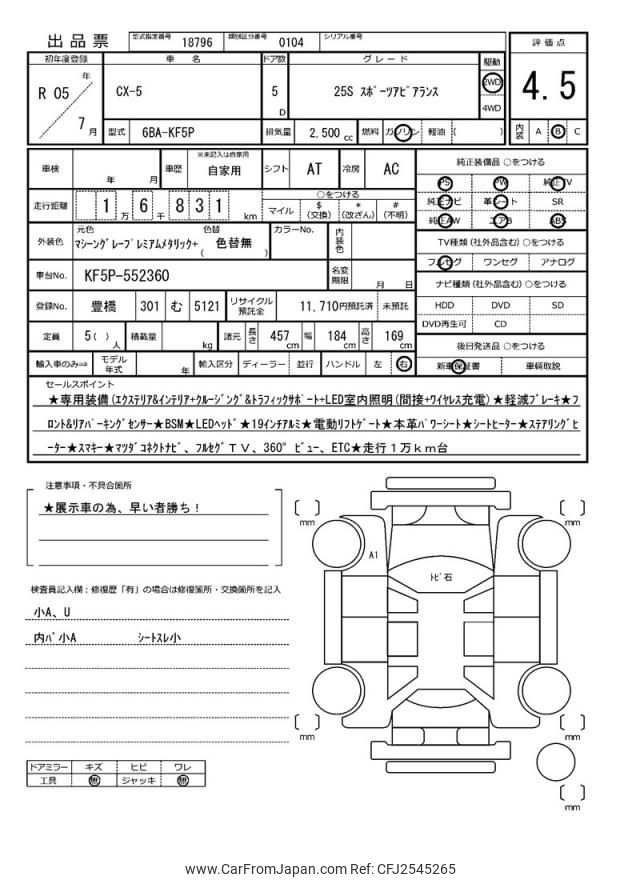 出品票
型式指定番号 18796 類別区分番号 0104 シリアル番号
初年度登録 車名 ドア数 グレード 駆動 評価点
R 05 年 7 月
CX-5 5 D 25S スポーツアピアランス 2WD 4WD
4.5
型式 6BA-KF5P 排気量 2,500 cc 燃料 ガソリン 軽油 ( )
内装 A B C
車検 年 月 車歴 ※未記入は自家用 自家用 シフト AT 冷房 AC
走行距離 1 万 6 千 8 3 1 km
○をつける
マイル $ (交換) * (改ざん) # (不明)
純正装備品 ○をつける
PS PW 純正TV
純正ナビ 革シート SR
純正AW エアB ABS
外装色 元色 色替 カラーNo. 内装色
マシーングレープレミアムメタリック+ ( 色替無 )
TV種類 (社外品含む) ○をつける
フルセグ ワンセグ アナログ
車台No. KF5P-552360 名変期限 月 日
ナビ種類 (社外品含む) ○をつける
HDD DVD SD
DVD再生可 CD
登録No. 豊橋 301 む 5121 リサイクル預託金 11,710円預託済 未預託
定員 5( ) 人 積載量 kg 諸元 長さ 457 cm 幅 184 cm 高さ 169 cm
後日発送品 ○をつける
新車保証書 車輌取説
輸入車のみ⇒ モデル年式 年 輸入区分 ディーラー 並行 ハンドル 左 右
セールスポイント
★専用装備(エクステリア&インテリア+クルージング&トラフィックサポート+LED室内照明(間接+ワイヤレス充電)★軽減ブレーキ★フ
ロント&リアパーキングセンサー★BSM★LEDヘッド★19インチアルミ★電動リフトゲート★本革パワーシート★シートヒーター★ステアリングヒ
ーター★スマキー★マツダコネクトナビ、フルセグTV、360°ビュー、ETC★走行1万km台
注意事項・不具合箇所
★展示車の為、早い者勝ち!
検査員記入欄:修復歴「有」の場合は修復箇所・交換箇所を記入
小A、U
内バ小A シートスレ小
mm
mm
A1
トビ石
mm
mm
mm
ドアミラー キズ ヒビ ワレ
工具 無 ジャッキ 無
www.CarFromJapan.com Ref: CFJ2545265